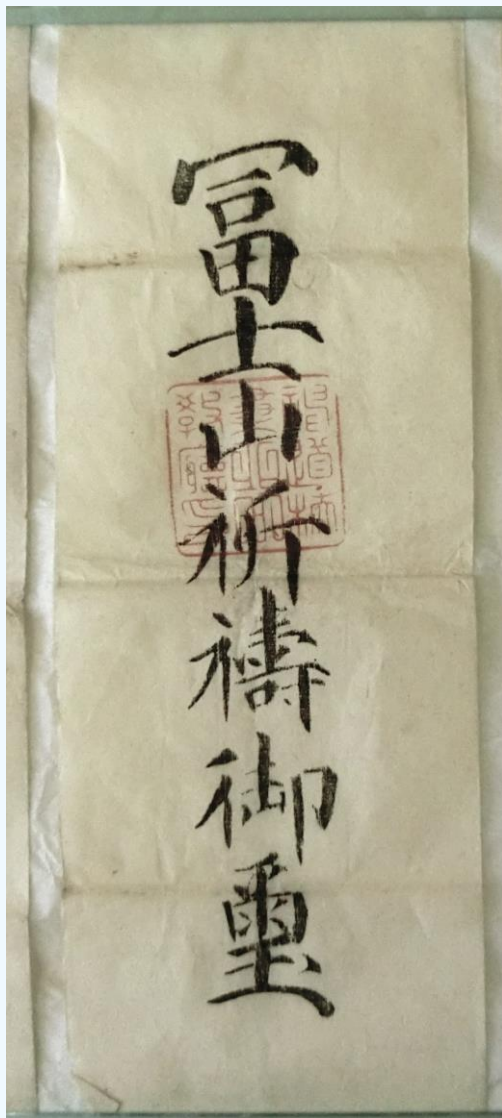 冨士山祈禱御璽